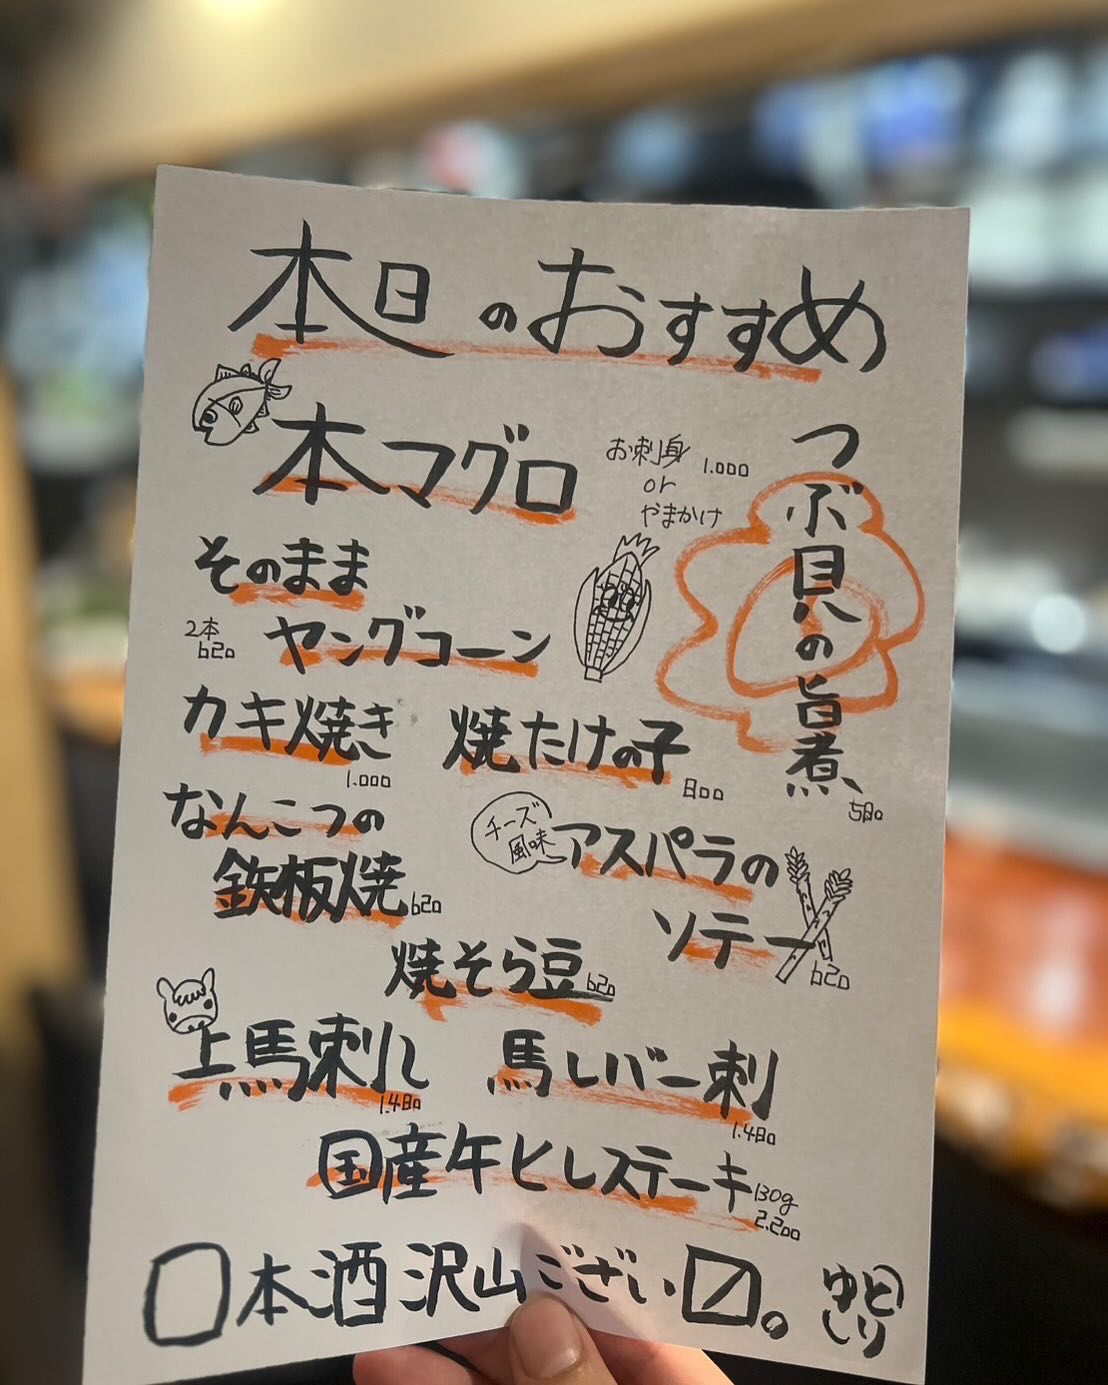 本日のおすすめ
本マグロ
お刺身 1.000
or
やまかけ
つぶ貝の旨煮
580
そのまま
ヤングコーン
2本
620
カキ焼き
1.000
焼たけの子
800
なんこつの
鉄板焼 620
チーズ
風味
アスパラの
ソテー 620
焼そら豆 620
上馬刺し
1.480
馬レバー刺
1.480
国産牛ヒレステーキ 130g
2.200
本酒沢山ござい〼。